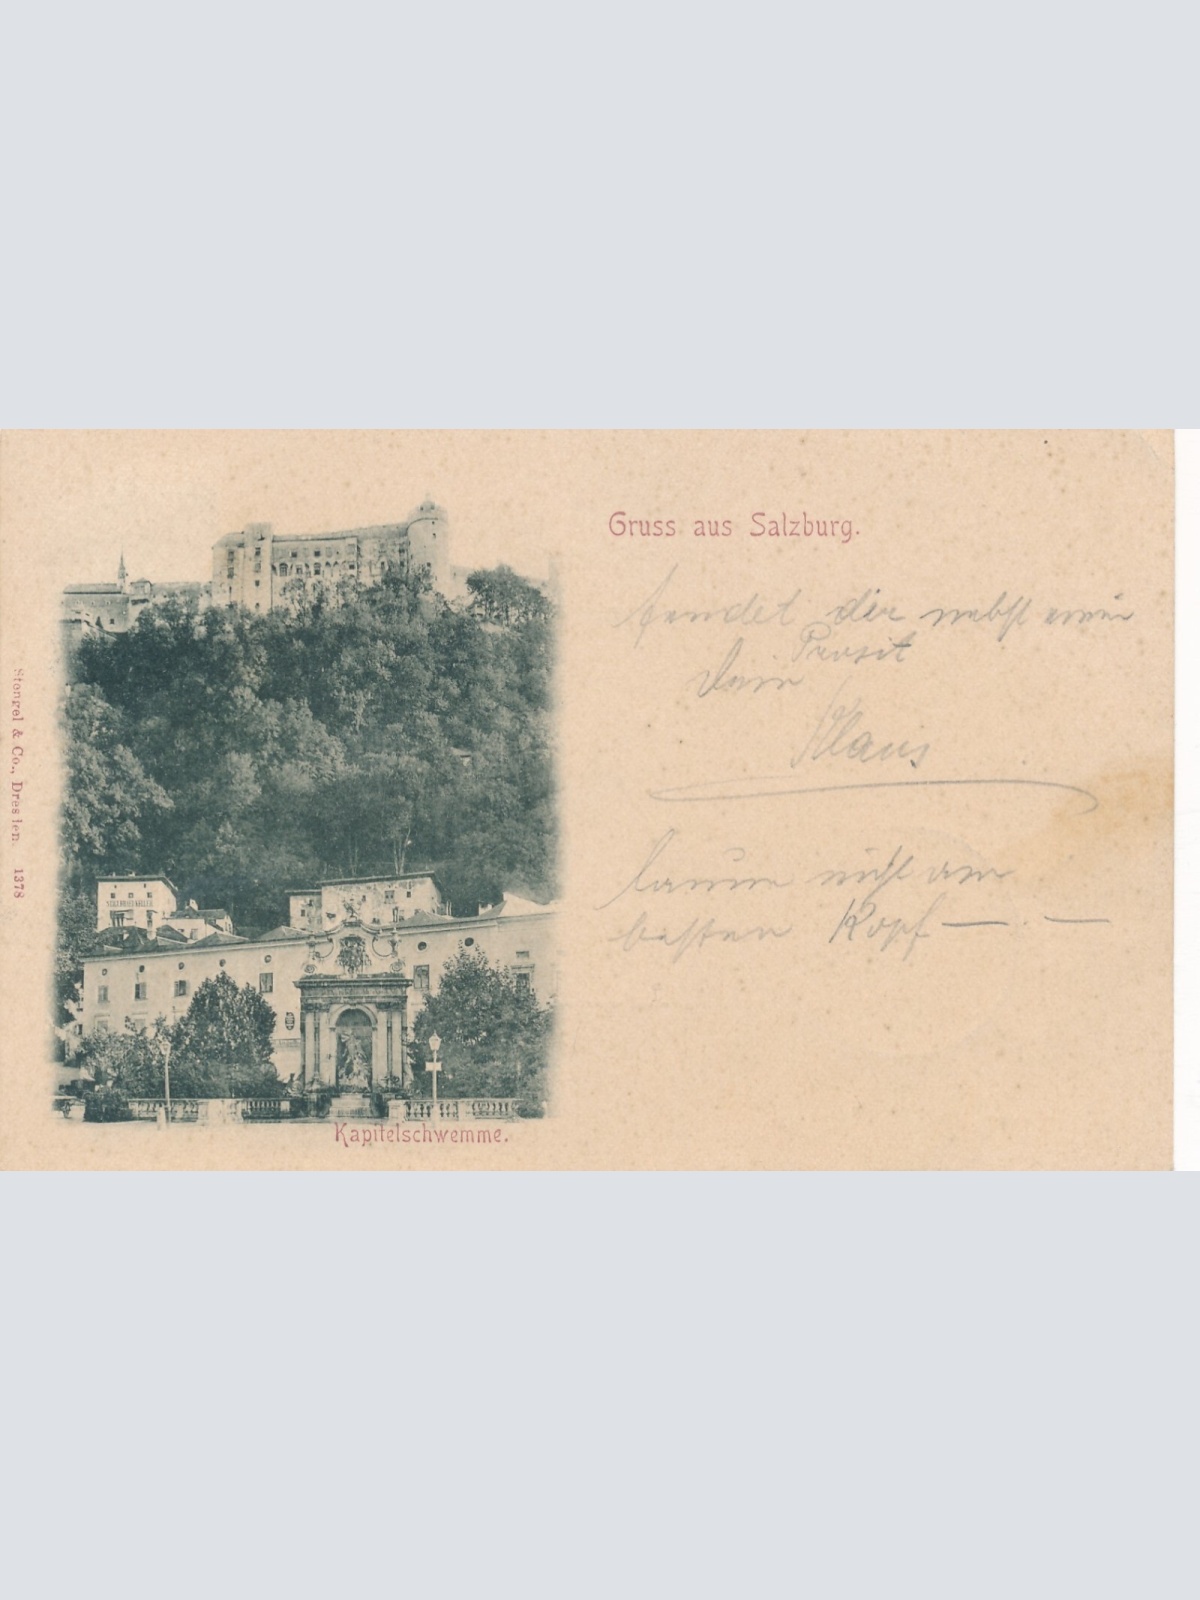 Gruss aus Salzburg.
sendet dir nebst einem
Prosit
Dein
Klaus
nicht am
besten Kopf — . —
Kapitelschwemme.
Stengel & Co., Dresden 1378